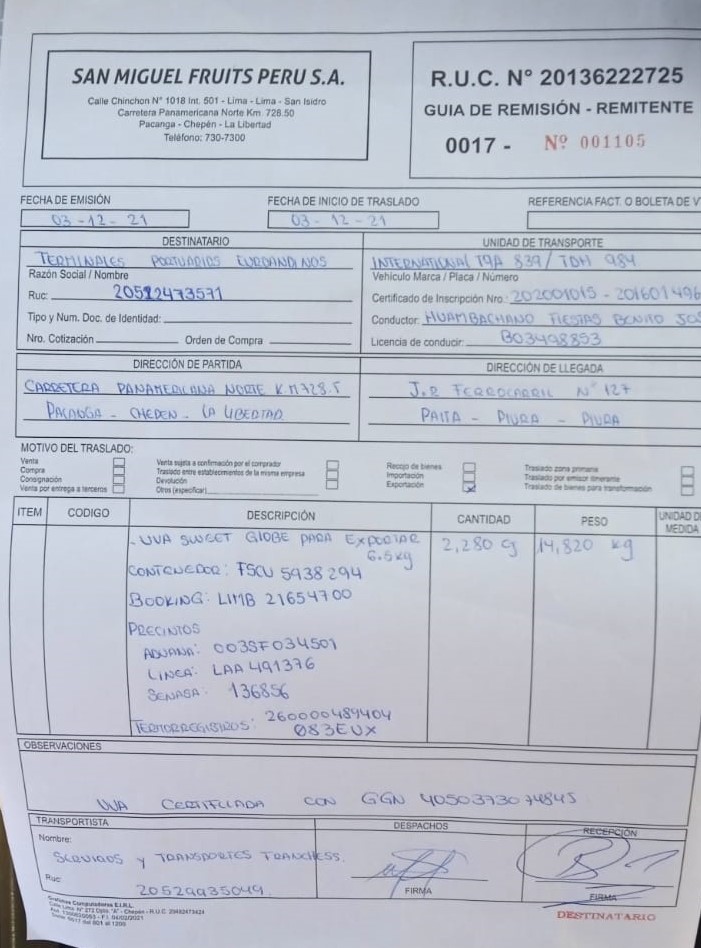 SAN MIGUEL FRUITS PERU S.A.
Calle Chinchon N° 1018 Int. 501 - Lima - Lima - San Isidro
Carretera Panamericana Norte Km. 728.50
Pacanga - Chepén - La Libertad
Teléfono: 730-7300
R.U.C. N° 20136222725
GUIA DE REMISIÓN - REMITENTE
0017 - Nº 001105
FECHA DE EMISIÓN
03-12-21
FECHA DE INICIO DE TRASLADO
03-12-21
REFERENCIA FACT. O BOLETA DE V
DESTINATARIO
TERMINALES PORTUARIOS EUROANDINOS
Razón Social / Nombre
Ruc: 20522473571
Tipo y Num. Doc. de Identidad:
Nro. Cotización Orden de Compra
UNIDAD DE TRANSPORTE
INTERNATIONAL T9A 839/ TDH 984
Vehículo Marca / Placa / Número
Certificado de Inscripción Nro.: 202001015 - 201601496
Conductor: HUAMBACHANO FIESTAS BENITO JOS
Licencia de conducir: B03498893
DIRECCIÓN DE PARTIDA
CARRETERA PANAMERICANA NORTE KM728.5
PACANGA - CHEPEN - LA LIBERTAD
DIRECCIÓN DE LLEGADA
J.R FERROCARRIL N° 127
PAITA - PIURA - PIURA
MOTIVO DEL TRASLADO:
Venta
Compra
Consignación
Venta por entrega a terceros
Venta sujeta a confirmación por el comprador
Traslado entre establecimientos de la misma empresa
Devolución
Otros (especificar)
Recojo de bienes
Importación
Exportación
Traslado zona primaria
Traslado por emisor itinerante
Traslado de bienes para transformación
ITEM CODIGO DESCRIPCIÓN CANTIDAD PESO UNIDAD D
MEDIDA
- UVA SWEET GLOBE PARA EXPORTAR 2,280 14,820 kg
6.5kg
CONTENEDOR: TSCU 5938294
BOOKING: LIMB 21654700
PRECINTOS
ADUANA: 003SF034501
LINEA: LAA 491376
SENASA: 136856
TERMORREGISTROS: 260000489404
083EUX
OBSERVACIONES
UVA CERTIFICADA CON GGN 4050373074845
TRANSPORTISTA
Nombre:
SERVICIOS Y TRANSPORTES TRANCHESS.
Ruc:
20529935049
DESPACHOS
FIRMA
RECEPCIÓN
FIRMA
DESTINATARIO